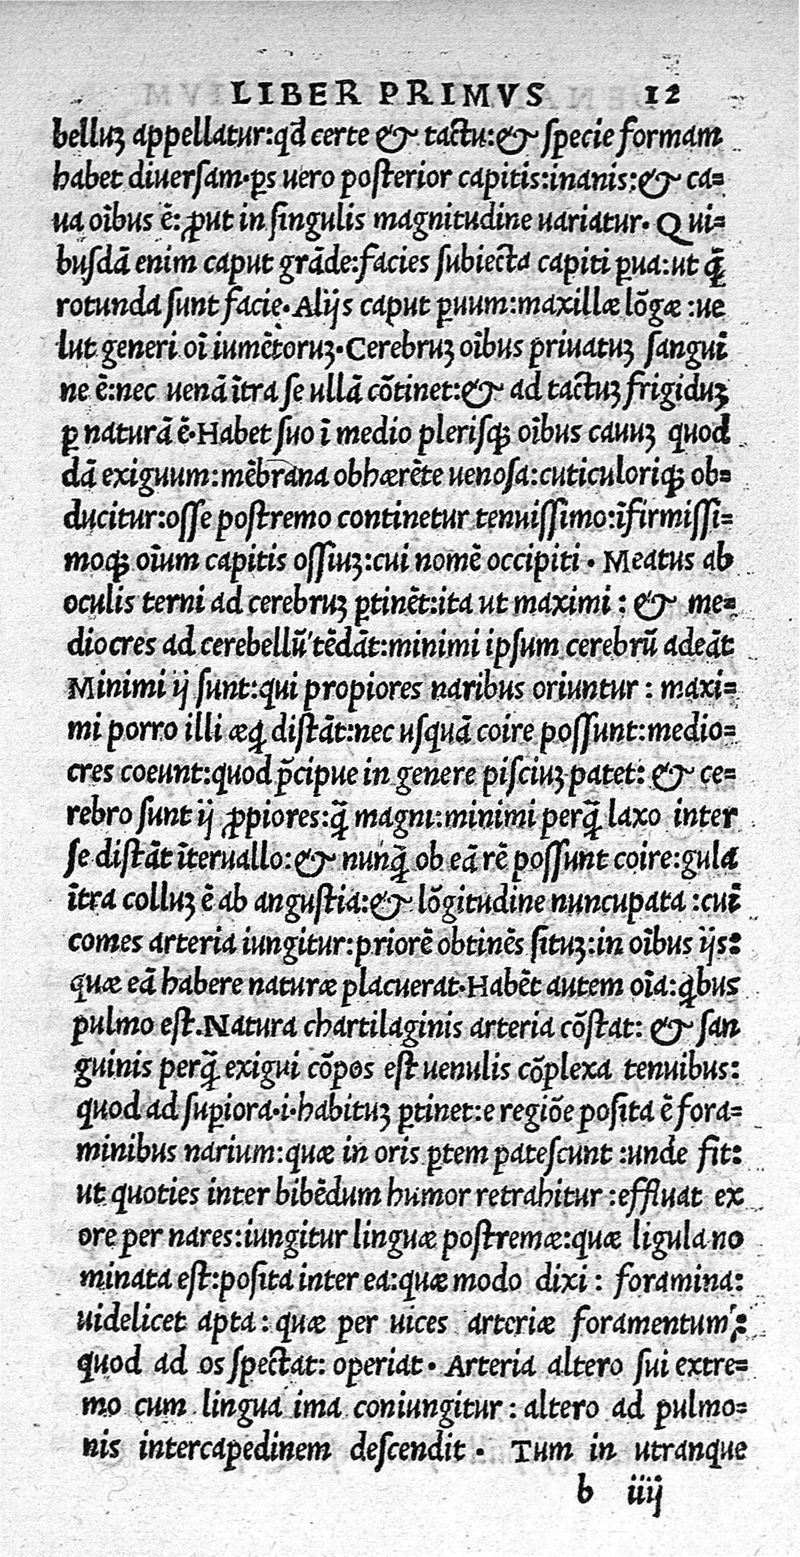 LIBER PRIMVS 12
belluꝫ appellatur:qd̄ certe & tactu:& ſpecie formam
habet diuerſam·ps uero poſterior capitis:inanis:& ca=
ua oībus ē:ꝓut in ſingulis magnitudine uariatur· Qui=
buſdā enim caput grāde:facies ſubiecta capiti ꝑua:ut q̄
rotunda ſunt facie·Alijs caput ꝑuum:maxillæ lōgæ :ue
lut generi oī iumētoruꝫ·Cerebruꝫ oībus priuatuꝫ ſangui
ne ē:nec uenā ītra ſe ullā cōtinet:& ad tactuꝫ frigiduꝫ
ꝑ naturā ē·Habet ſuo ī medio pleriſqꝫ oībus cauuꝫ quod
dā exiguum:mēbrana obhærēte uenoſa:cuticuloriqꝫ ob=
ducitur:oſſe poſtremo continetur tenuiſſimo:īfirmiſſi=
moqꝫ oīum capitis oſſiuꝫ:cui nomē occipiti · Meatus ab
oculis terni ad cerebruꝫ ꝑtinēt:ita ut maximi : & me=
diocres ad cerebellū tēdāt:minimi ipſum cerebrū adeāt
Minimi ij ſunt:qui propiores naribus oriuntur : maxi=
mi porro illi æq̄ diſtāt:nec uſquā coire poſſunt:medio=
cres coeunt:quod p̄cipue in genere piſciuꝫ patet: & ce=
rebro ſunt ij ꝓpiores:q̄ magni:minimi perq̄ laxo inter
ſe diſtāt īteruallo:& nunq̄ ob eā rē poſſunt coire:gula
ītra colluꝫ ē ab anguſtia:& lōgitudine nuncupata :cui
comes arteria iungitur:priorē obtinēs ſituꝫ:in oībus ijs:
quæ eā habere naturæ placuerat·Habēt autem oīa:qbus
pulmo eſt.Natura chartilaginis arteria cōſtat: & ſan
guinis perq̄ exigui cōpos eſt uenulis cōplexa tenuibus:
quod ad ſuꝑiora·i·habituꝫ ꝑtinet:e regiōe poſita ē fora=
minibus narium:quæ in oris ꝑtem pateſcunt :unde fit:
ut quoties inter bibēdum humor retrahitur :effluat ex
ore per nares:iungitur linguæ poſtremæ:quæ ligula no
minata eſt:poſita inter ea:quæ modo dixi : foramina:
uidelicet apta : quæ per uices arteriæ foramentum:
quod ad os ſpectat: operiat· Arteria altero ſui extre=
mo cum lingua ima coniungitur : altero ad pulmo=
nis intercapedinem deſcendit · Tum in utranque
b iiij